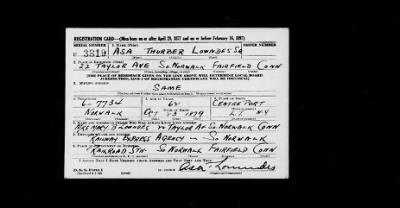 REGISTRATION CARD—(Men born on or after April 28, 1877 and on or before February 16, 1897)
SERIAL NUMBER 1. NAME (Print) ORDER NUMBER
3819 ASA THURBER LOWNDES SR
2. PLACE OF RESIDENCE (Print)
22 TAYLOR AVE SO NORWALK FAIRFIELD CONN
[THE PLACE OF RESIDENCE GIVEN ON THE LINE ABOVE WILL DETERMINE LOCAL BOARD
JURISDICTION; LINE 2 OF REGISTRATION CERTIFICATE WILL BE IDENTICAL]
3. MAILING ADDRESS
SAME
4. TELEPHONE 5. AGE IN YEARS 6. PLACE OF BIRTH
6-7734 62 CENTRE PORT
DATE OF BIRTH
NORWALK OCT 23 1879 L.I. N.Y.
7. NAME AND ADDRESS OF PERSON WHO WILL ALWAYS KNOW YOUR ADDRESS
MRS MARY D LOWNDES TAYLOR AV SO NORWALK CONN
8. EMPLOYER'S NAME AND ADDRESS
RAILWAY EXPRESS AGENCY SO NORWALK
9. PLACE OF EMPLOYMENT OR BUSINESS
RAILROAD STN SO NORWALK FAIRFIELD CONN
I AFFIRM THAT I HAVE VERIFIED ABOVE ANSWERS AND THAT THEY ARE TRUE.
D. S. S. Form 1
Asa Lowndes